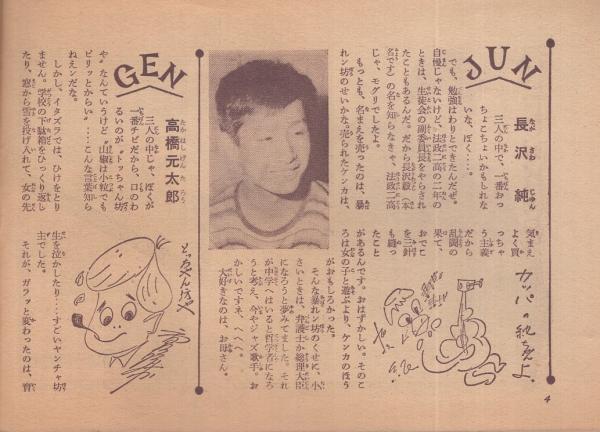 JUN
長沢純
三人の中で、一番おっ
ちょこちょいかもしれな
いな、ぼく……。
でも、勉強はわりとできたんだぜ。
自慢じゃないけど、法政二高の二年の
ときは、生徒会の副委員長をやらされ
たこともあるんだ。だから長沢毅（本
名です）の名を知らなきゃ、法政二高
じゃ、モグリでしたよ。
もっとも、名まえを売ったのは、暴
れン坊のせいかな。売られたケンカは、
気まえ
よく買
っちゃ
う主義
だから
乱闘の
果て、
おでこ
を三針
も縫っ
たこと
があるんです。おはずかしい。そのこ
ろは女の子と遊ぶより、ケンカのほう
がおもしろかった。
そんな暴れン坊のくせに、小
さいときは、弁護士か総理大臣
になろうと夢みてました。それ
が中学へはいると哲学者になろ
うと考え、今やジャズ歌手。お
かしいですネ、へへへ。
大好きなのは、お母さん。
カッパの純ちゃんよ
GEN
高橋元太郎
三人の中じゃ、ぼくが
一番チビだから、口のわ
るいのが〝トッちゃん坊
や〟なんていうけど〝山椒は小粒でも
ピリッとからい〟……こんな言葉知ら
ねえンだな。
しかし、イタズラでは、ひけをとり
ません。学校の下駄箱をひっくり返し
たり、窓から雪を投げ入れて、女の先
生を泣かしたり……すごいヤンチャ坊
主でした。
それが、ガラッと変わったのは、曾
とっちゃん坊や
4